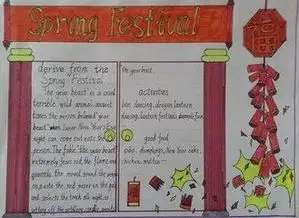 Spring Festival
福
derive from the
Spring Festival
The year beast is a cruel
terrible wild animal. ancient
times the person believed year
beast New Year's Eve
night can come out eats the
person. The fake "the year beast"
extremely fears red, the flame and
the round the
paste the red paper in the
and selects the torch all night is
setting off the
the year beast.
activities
lion dancing, dragon lantern
dancing, lantern festival, temple fair
good food
cake, dumplings, New Year cake,
chicken, mutton